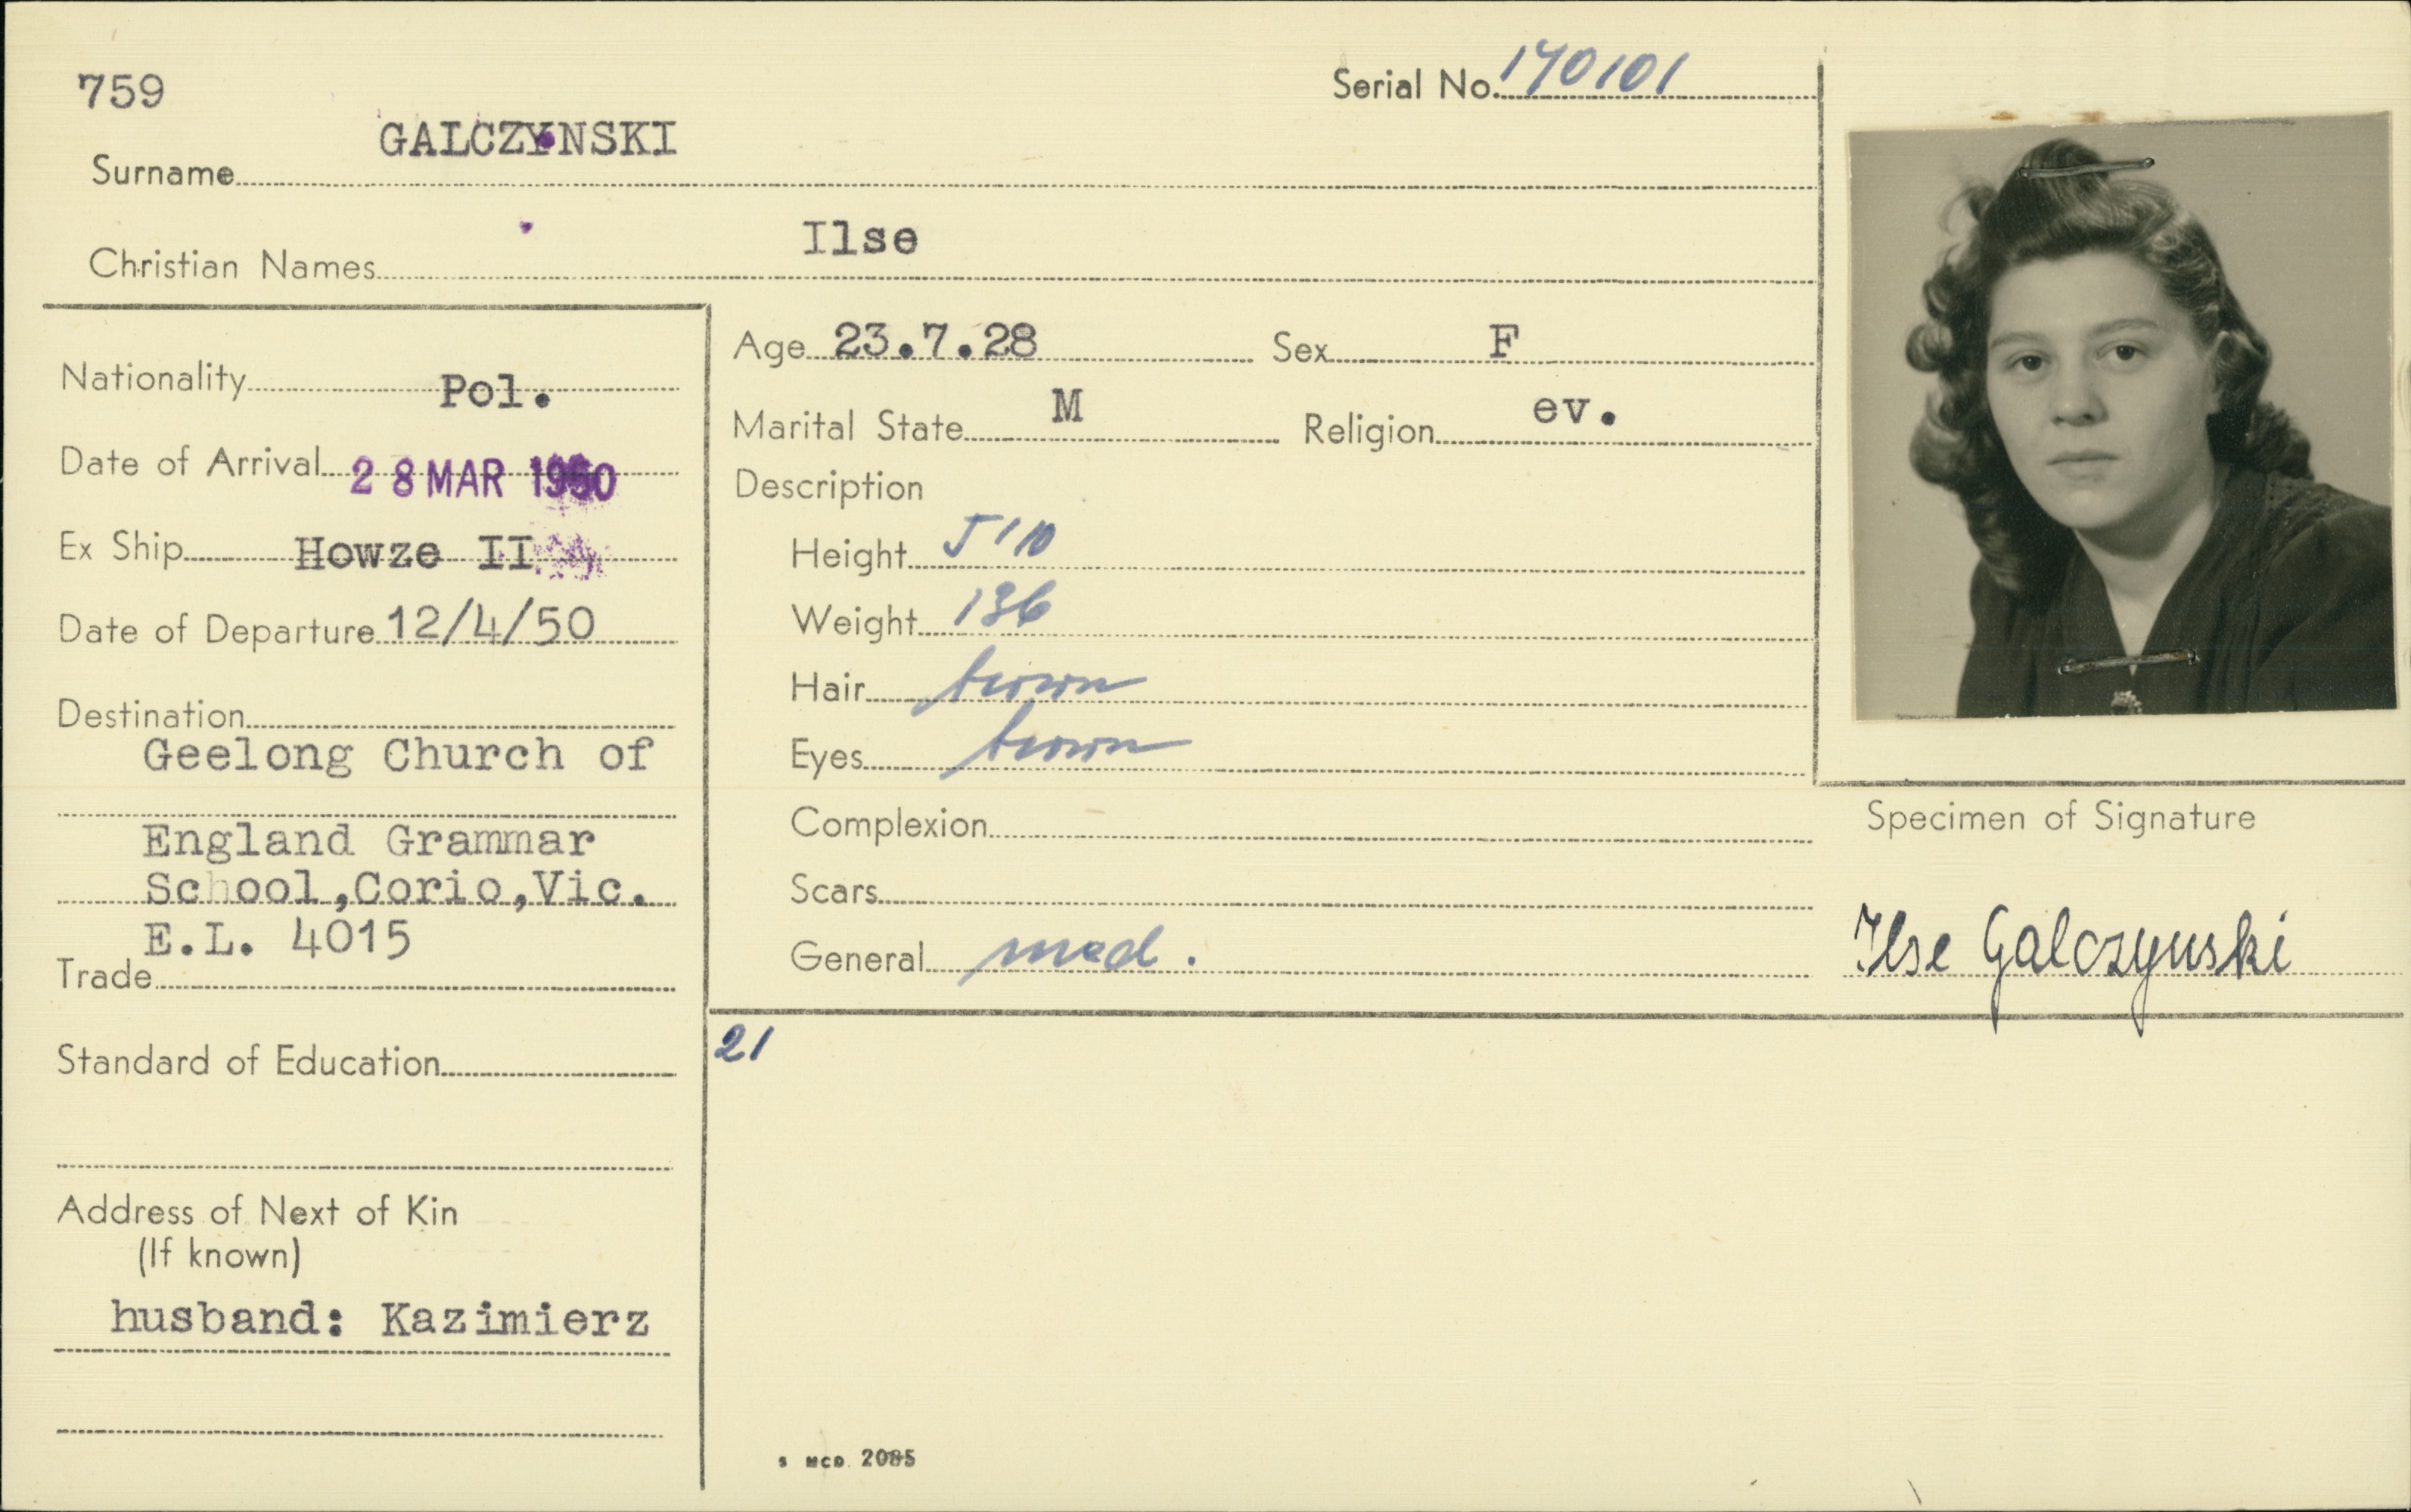 759
Serial No. 170101
GALCZYNSKI
Surname
Ilse
Christian Names
Nationality Pol.
Date of Arrival 28 MAR 1950
Ex Ship Howze II
Date of Departure 12/4/50
Destination
Geelong Church of
England Grammar
School,Corio,Vic.
E.L. 4015
Trade
Standard of Education
Address of Next of Kin
(If known)
husband: Kazimierz
Age 23.7.28 Sex F
Marital State M Religion ev.
Description
Height 5'10
Weight 136
Hair brown
Eyes brown
Complexion
Scars
General med.
21
Specimen of Signature
Ilse Galczynski
S MCD. 2085